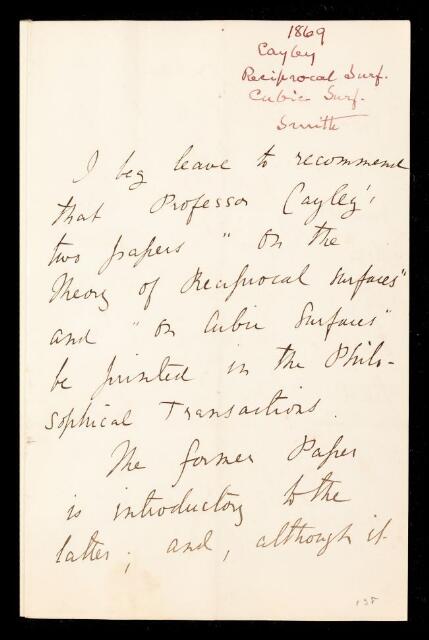 1869
Cayley
Reciprocal Surf.
Cubic Surf.
Smith
I beg leave to recommend
that Professor Cayley's
two papers " on the
Theory of Reciprocal surfaces"
and " on Cubic Surfaces"
be printed in the Philo-
sophical Transactions.
The former Paper
is introductory to the
latter; and, although it